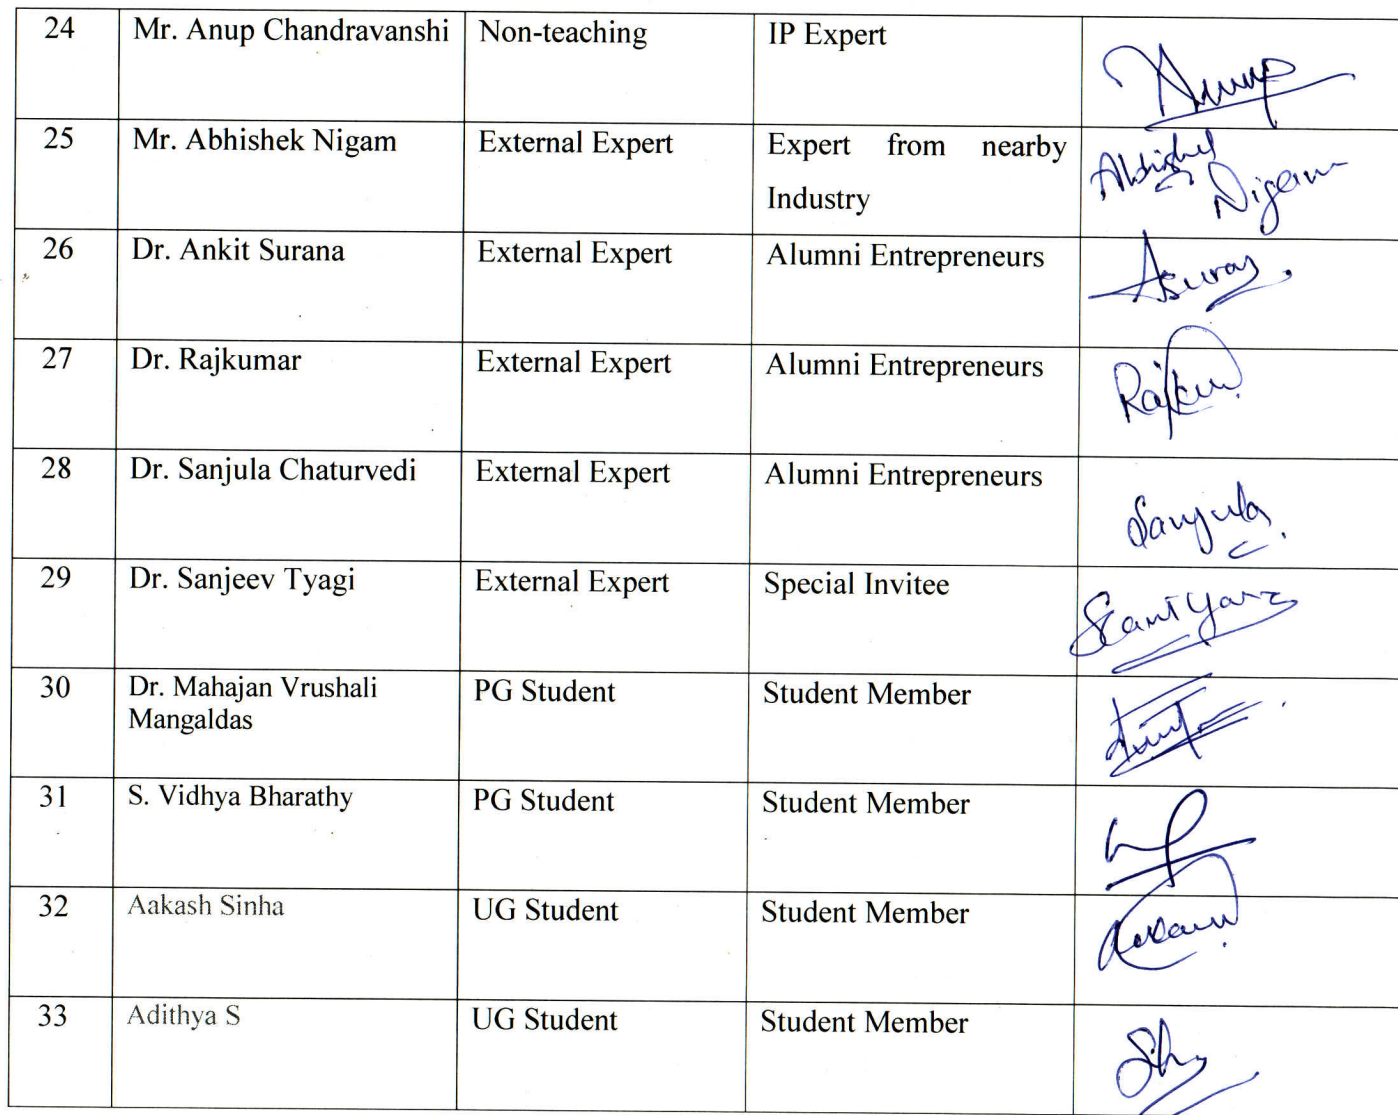 24 Mr. Anup Chandravanshi Non-teaching IP Expert Anup
25 Mr. Abhishek Nigam External Expert Expert from nearby
Industry
Abhishek
Nigam
26 Dr. Ankit Surana External Expert Alumni Entrepreneurs
27 Dr. Rajkumar External Expert Alumni Entrepreneurs
28 Dr. Sanjula Chaturvedi External Expert Alumni Entrepreneurs Sanjula
29 Dr. Sanjeev Tyagi External Expert Special Invitee
30 Dr. Mahajan Vrushali PG Student Student Member
Mangaldas
31 S. Vidhya Bharathy PG Student Student Member
32 Aakash Sinha UG Student Student Member
33 Adithya S UG Student Student Member